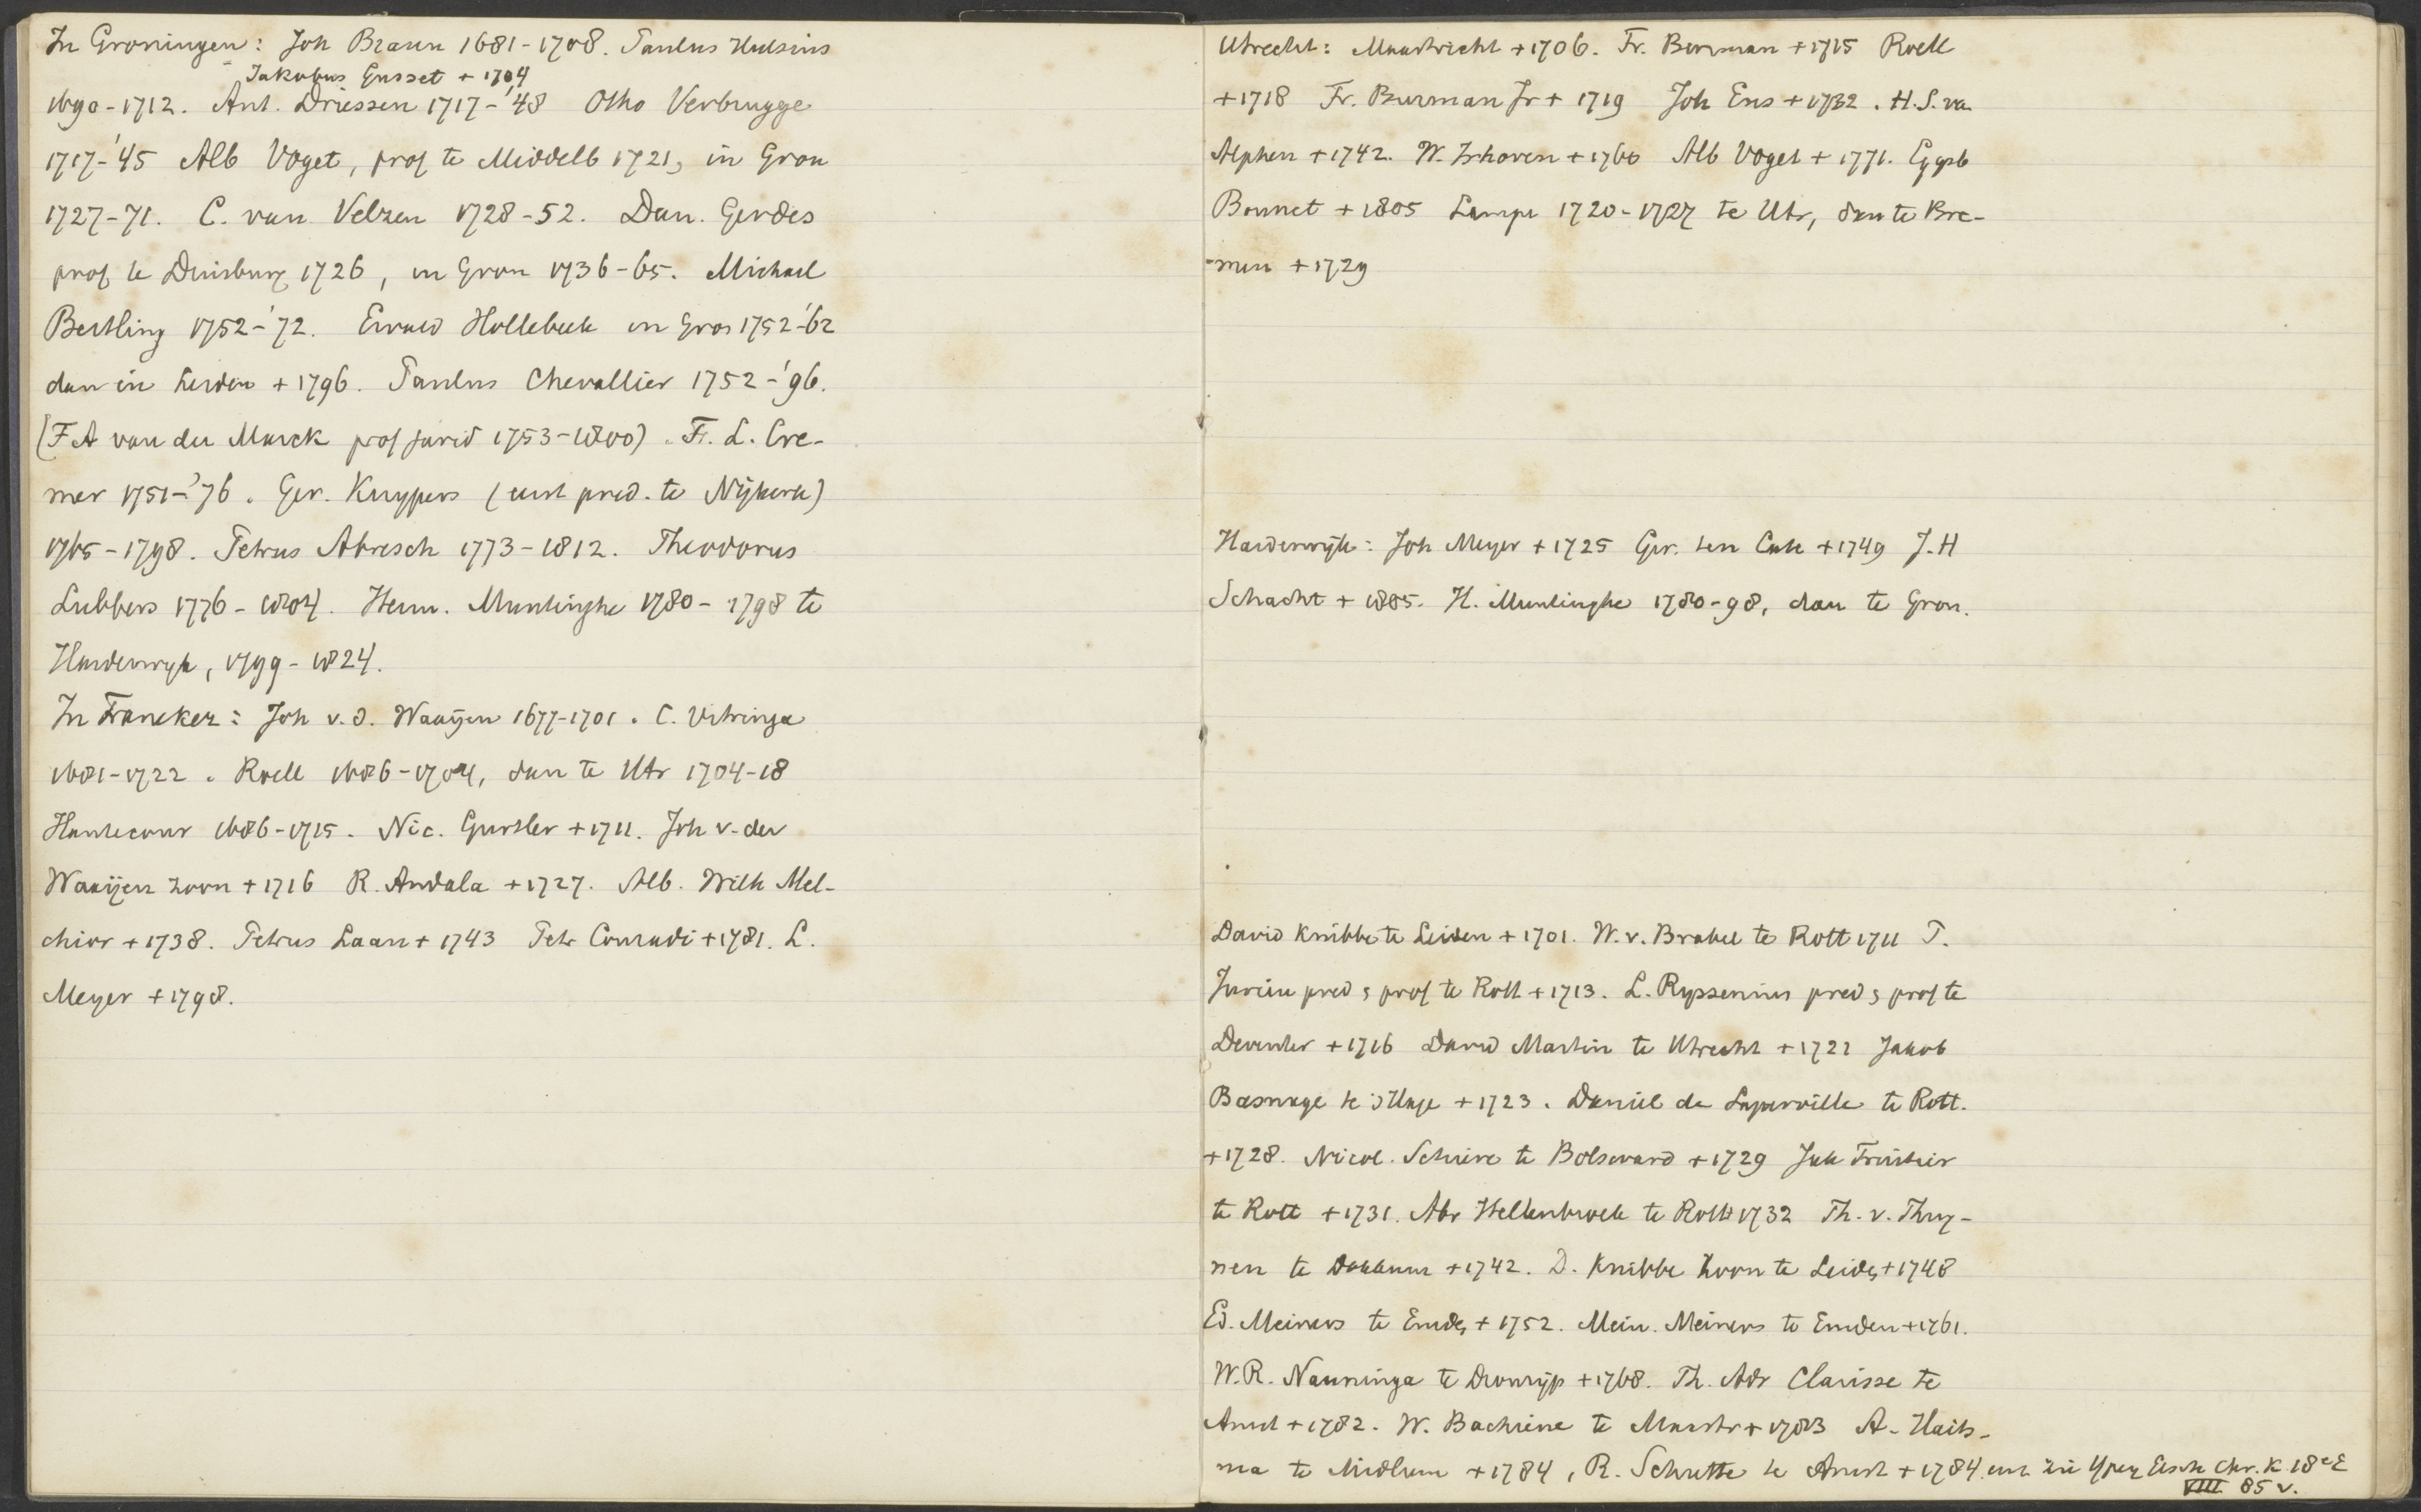 In Groningen: Joh Braun 1681-1708. Paulus Hulsius
Jakobus Gusset + 1704
1690-1712. Ant. Driessen 1717-'48 Otho Verbrugge
1717-'45 Alb Voget, prof te Middelb 1721, in Gron
1727-71. C. van Velzen 1728-52. Dan. Gerdes
prof te Duisburg 1726, in Gron 1736-65. Michael
Bertling 1752-'72. Ewald Hollebeek in Gron 1752-'62
dan in Leiden + 1796. Paulus Chevallier 1752-'96.
(F A van der Marck prof jurid 1753-1800). F. L. Cre-
mer 1751-'76. Ger. Kuypers (eerst pred. te Nijkerk)
1765-1798. Petrus Abresch 1773-1812. Theodorus
Lubbers 1776-1804. Herm. Muntinghe 1780-1798 te
Harderwyk, 1799-1824.
In Franeker: Joh v.d. Waaijen 1677-1701. C. Vitringa
1681-1722. Roell 1686-1704, dan te Utr 1704-18
Hautecour 1686-1715. Nic. Gurtler + 1711. Joh v. der
Waaijen zoon + 1716 R. Andala + 1727. Alb. Wilh Mel-
chior + 1738. Petrus Laan + 1743 Petr Conradi + 1781. L.
Meyer + 1798.
Utrecht: Maastricht + 1706. Fr. Burman + 1715 Roell
+ 1718 Fr. Burman Jr + 1719 Joh Ens + 1732. H.S. van
Alphen + 1742. W. Irhoven + 1760 Alb Voget + 1771. Gysb
Bonnet + 1805 Lampe 1720-1727 te Utr, dan te Bre-
men + 1729
Harderwijk: Joh Meyer + 1725 Ger. ten Cate + 1749 J.H
Schacht + 1805. H. Muntinghe 1780-98, dan te Gron.
David Knibbe te Leiden + 1701. W. v. Brakel te Rott 1711 P.
Jurieu pred & prof te Rott + 1713. L. Ryssenius pred & prof te
Deventer + 1716 David Martin te Utrecht + 1721 Jakob
Basnage te 's Hage + 1723. Daniel de Superville te Rott.
+ 1728. Nicol. Schiere te Bolsward + 1729 Jak Fruitier
te Rott + 1731. Abr Hellenbroek te Rott + 1732 Th. v. Thuy-
nen te Dokkum + 1742. D. Knibbe zoon te Leiden + 1748
Ed. Meiners te Emden + 1752. Mein. Meiners te Emden + 1761.
W.R. Nauninga te Dronrijp + 1768. Th. Adr Clarisse te
Amst + 1782. W. Bachiene te Maastr + 1783 A. Haits-
ma te Midlum + 1784, R. Schutte te Amst + 1784. enz zie Ypey Gesch Chr. K 18e E
VIII 85 v.